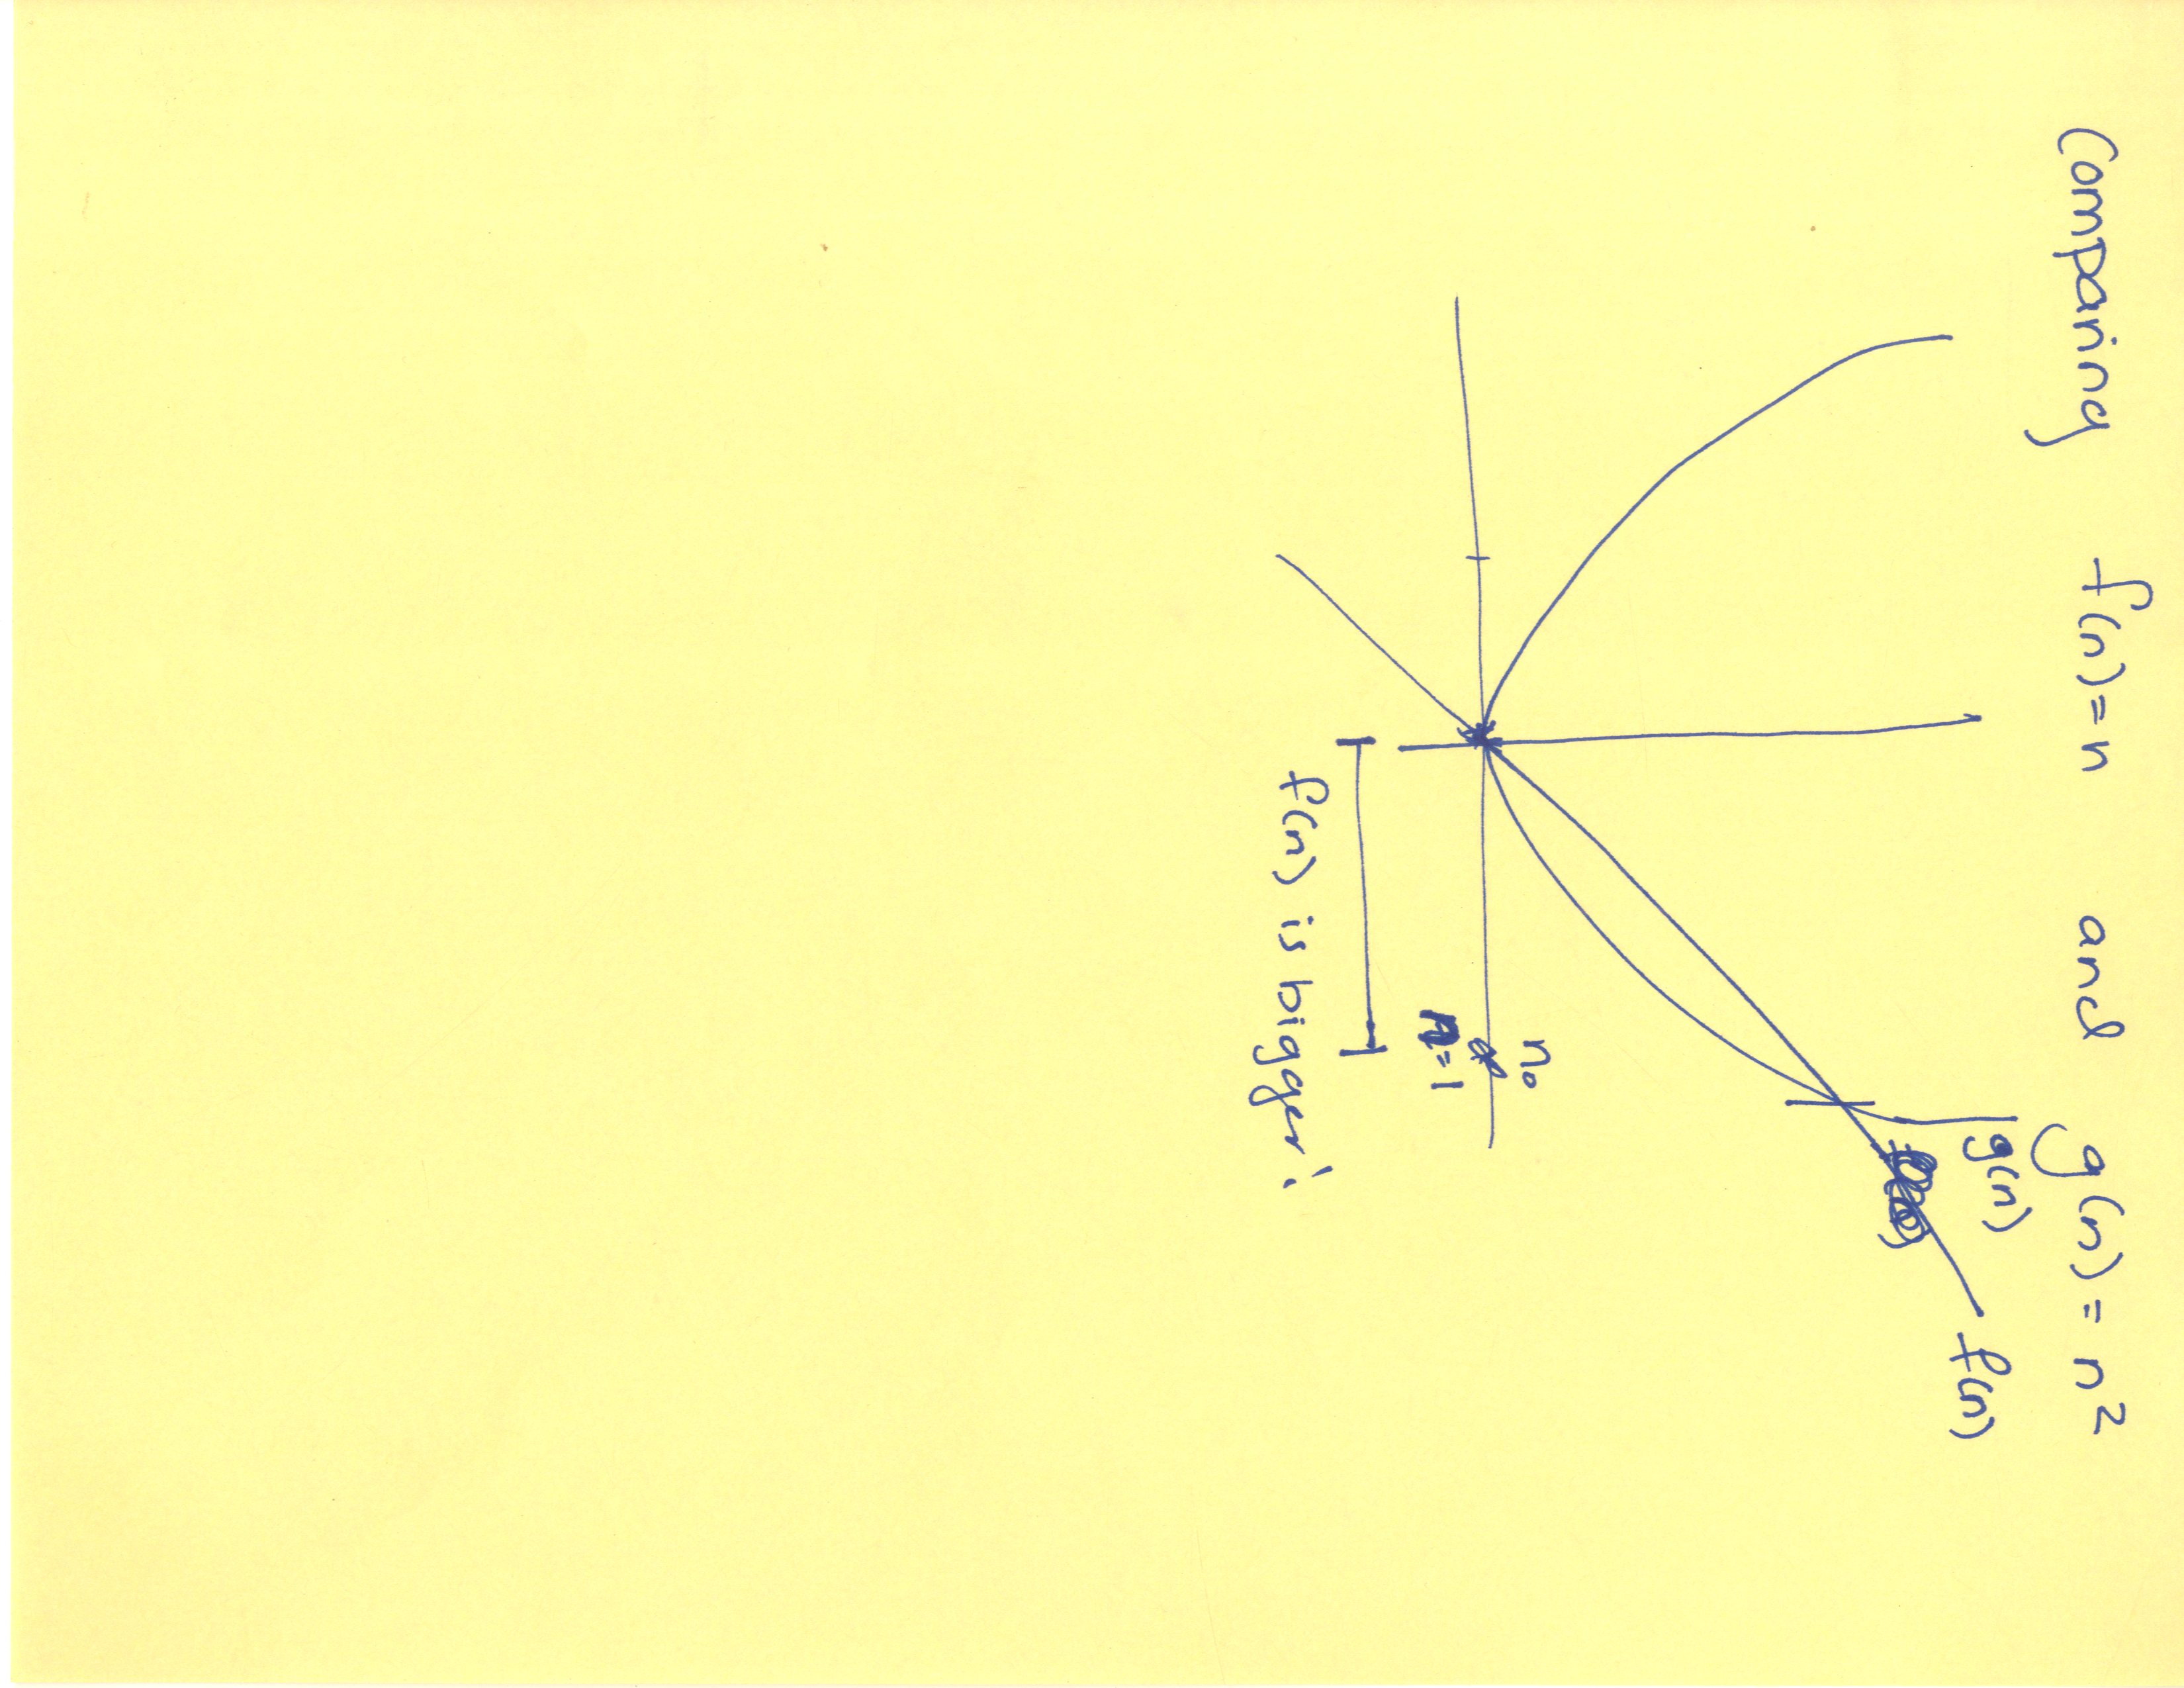 Comparing f(n)=n and g(n)=n²
g(n)
f(n)
n₀
n=1
f(n) is bigger!